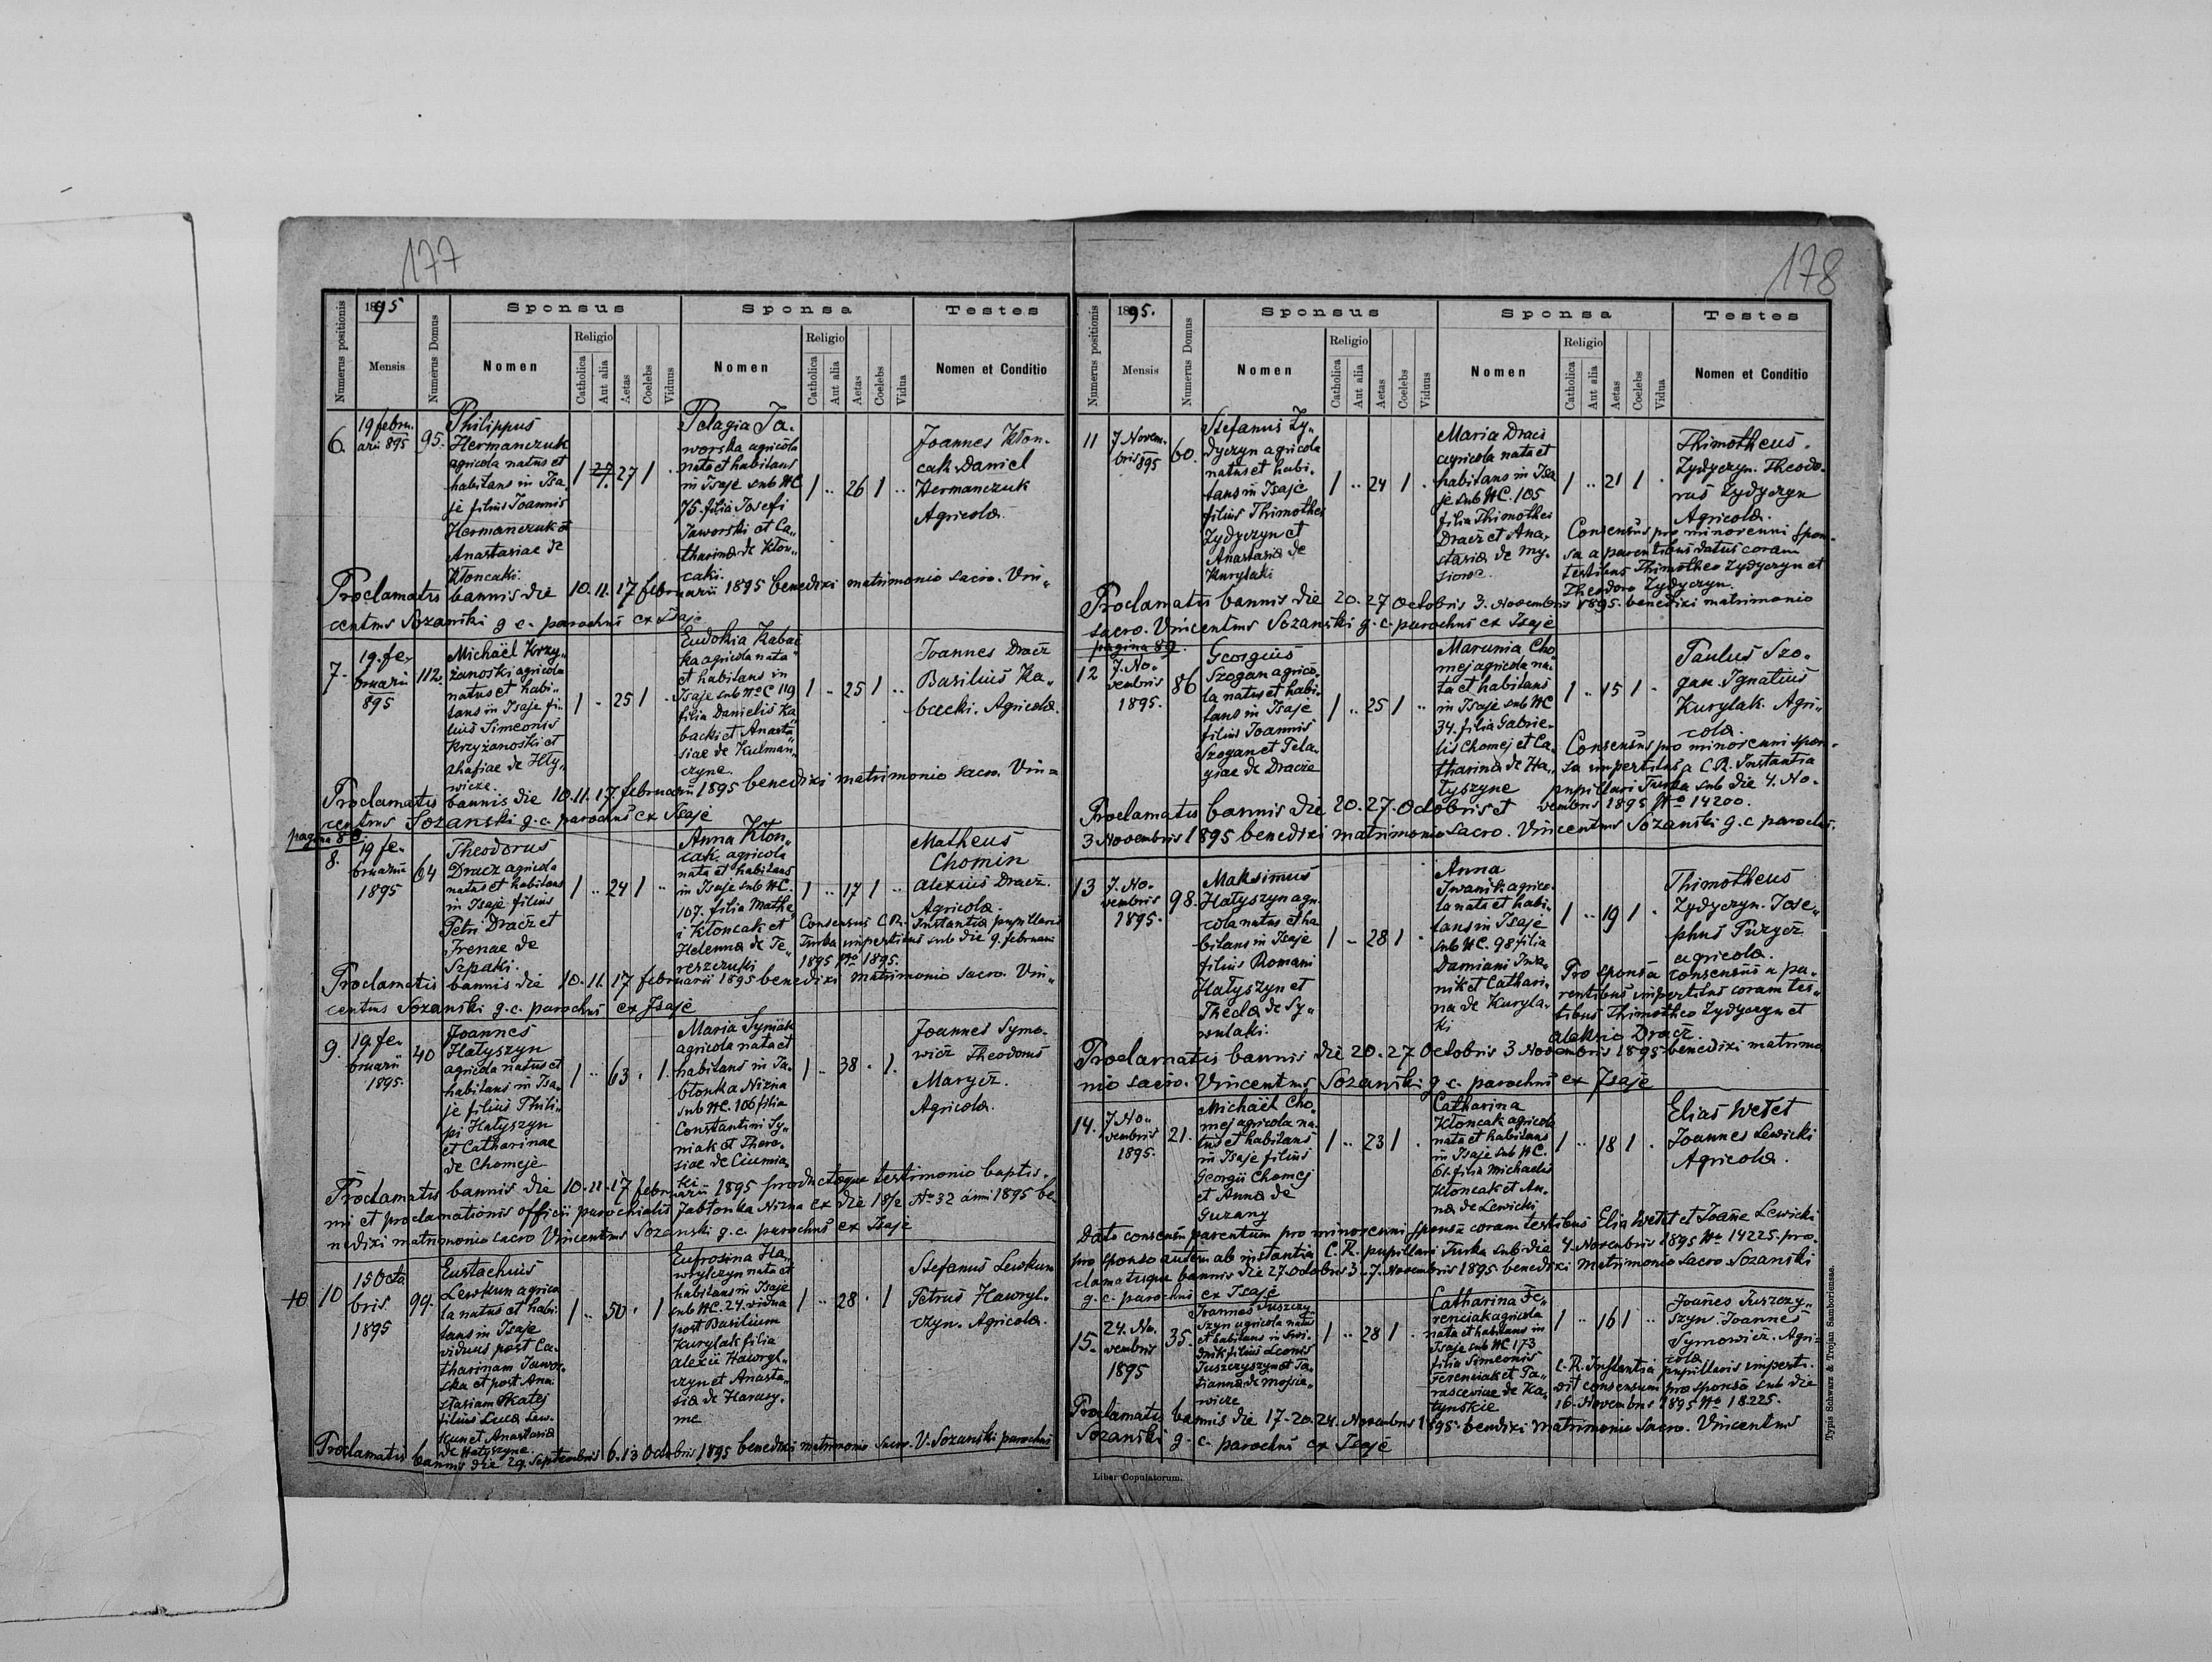 177
1895
Sponsus
Sponsa
Testes
Numerus positionis
Mensis
Numerus Domus
Nomen
Religio
Catholica
Aut alia
Aetas
Coelebs
Viduus
Nomen
Religio
Catholica
Aut alia
Aetas
Coelebs
Vidua
Nomen et Conditio
6.
19 febru-
arii 895
95.
Philippus
Hermanczuk
agricola natus et
habitans in Isa-
je filius Joannis
Hermanczuk et
Anastasiae de
Kłoncaki.
1 27 27 1
Pelagia Ja-
worska agricola
nata et habitans
in Isaje sub NC
75. filia Josefi
Jaworski et Ca-
tharina de Kłon-
caki.
1 .. 26 1 ..
Joannes Kłon-
cak. Daniel
Hermanczuk
Agricola.
Proclamatis bannis die 10. 11. 17 februarii 1895 benedixi matrimonio sacro. Vin-
centius Sozanski g. c. parochus ex Isaje
7.
19. fe-
bruarii
895
112.
Michaël Krzy-
żanoski agricola
natus et habi-
tans in Isaje fi-
lius Simeonis
Krzyżanoski et
Ahafiae de Hły-
wicze.
1 .. 25 1 .
Eudokia Kabac-
ka agricola nata
et habitans in
Isaje sub No C 119
filia Danielis Ka-
backi et Anasta-
siae de Kulman-
czyne.
1 .. 25 1 ..
Joannes Dracz
Basilius Ka-
backi. Agricola.
Proclamatis bannis die 10. 11. 17. februarii 1895 benedixi matrimonio sacro. Vin-
centius Sozanski g. c. parochus ex Isaje
pagina 88.
8.
19 fe-
bruarii
1895
64
Theodorus
Dracz agricola
natus et habitans
in Isaje filius
Petri Dracz et
Irenae de
Szpaki.
1 .. 24 1 ..
Anna Kłon-
cak. agricola
nata et habitans
in Isaje sub NC.
107. filia Mathe-
i Kłoncak et
Helenna de Te-
reszczuki
1 .. 17 1 ..
Matheus
Chomin
Alexius Dracz.
Agricola.
Consensus C.R. Instantia pupillaris
Turka impertitus sub die 9. februarii
1895 No 1895.
Proclamatis bannis die 10. 11. 17 februarii 1895 benedixi matrimonio sacro. Vin-
centius Sozanski g. c. parochus ex Isaje
9.
19. fe-
bruarii
1895.
40
Joannes
Hałyszyn
agricola natus et
habitans in Isa-
je filius Phili-
pi Hałyszyn
et Catharinae
de Chomeje
1 .. 63 . 1.
Maria Syniak
agricola nata et
habitans in Ja-
błonka Niżna
sub NC. 106 filia
Constantini Sy-
niak et Thero-
siae de Ciumia-
ki
1 .. 38 . 1.
Joannes Symo-
wicz Theodorus
Marycz.
Agricola.
Proclamatis bannis die 10. 11. 17 februarii 1895 productoque testimonio baptis-
mi et proclamationis officii parochialis Jabłonka Niżna ex die 18/2 No 32 anni 1895 be-
nedixi matrimonio sacro Vincentius Sozanski g. c. parochus ex Isaje
10 10
15 Octo
bris
1895
99.
Eustachius
Lewkun agrico-
la natus et habi-
tans in Isaje
viduus post Ca-
tharinam Jawor-
ska et post Ana-
stasiam
filius Luca Lew-
kun et Anastasia
de Hałyszyne.
1 .. 50 . 1
Eufrosina Ha-
wrylczyn nata et
habitans in Isaje
sub NC. 24. vidua
post Basilium
Kurylak filia
Alexii Hawryl-
czyn et Anasta-
sia de Harasy-
me
1 .. 28 . 1
Stefanus Lewkun
Petrus Hawryl-
czyn. Agricola.
Proclamatis bannis die 29. Septembris 6. 13 Octobris 1895 benedixi matrimonio sacro. V. Sozanski parochus
178
1895.
Sponsus
Sponsa
Testes
Numerus positionis
Mensis
Numerus Domus
Nomen
Religio
Catholica
Aut alia
Aetas
Coelebs
Viduus
Nomen
Religio
Catholica
Aut alia
Aetas
Coelebs
Vidua
Nomen et Conditio
11
7. Novem-
bris 895
60.
Stefanus Zy-
dyczyn agricola
natus et habi-
tans in Isaje
filius Thimothei
Zydyczyn et
Anastasia de
Kurylaki
1 .. 24 1 .
Maria Dracz
agricola nata et
habitans in Isa
je sub NC. 105
filia Thimothei
Dracz et Ana-
stasia de My-
siowe.
1 .. 21 1 .
Thimotheus
Zydyczyn. Theodo-
rus Zydyczyn
Agricola.
Consensus pro minorenni spon-
sa a parentibus datus coram
testibus Thimotheo Zydyczyn et
Theodoro Zydyczyn.
Proclamatis bannis die 20. 27 Octobris 3. Novembris 1895. benedixi matrimonio
sacro. Vincentius Sozanski g. c. parochus ex Isaje
pagina 89.
12
7. No-
vembris
1895.
86
Georgius
Szogan agrico-
la natus et habi-
tans in Isaje
filius Joannis
Szogan et Pela-
giae de Dracze
1 .. 25 1 ..
Marunia Cho
mej agricola na-
ta et habitans
in Isaje sub NC
34. filia Gabrie-
lis Chomej et Ca-
tharina de Ha-
łyszyne
1 .. 15 1 -
Paulus Szo-
gan. Ignatius
Kurylak. Agri-
cola.
Consensus pro minorenni spon-
sa impertitus a C.R. Instantia
pupillari Turka sub die 4. No-
vembris 1895 No 14200.
Proclamatis bannis die 20. 27. Octobris et
3 Novembris 1895 benedixi matrimonio sacro. Vincentius Sozanski g. c parochus.
13
7. No-
vembris
1895.
98.
Maksimus
Hałyszyn agri
cola natus et ha
bitans in Isaje
filius Romani
Hałyszyn et
Thecla de Sy-
wulaki.
1 .. 28 1 .
Anna
Iwanik agrico-
la nata et habi-
tans in Isaje
sub NC. 98 filia
Damiani Iwa-
nik et Cathari-
na de Kuryla-
ki
1 .. 19 1 .
Thimotheus
Zydyczyn. Jose-
phus Puzycz
agricola.
Pro sponsa consensus a pa-
rentibus impertitus coram tes-
tibus Thimotheo Zydyczyn et
Aleksio Dracz.
Proclamatis bannis die 20. 27 Octobris 3 Novembris 1895 benedixi matrimo
nio sacro. Vincentius Sozanski g. c. parochus ex Isaje
14.
7. No-
vembris
1895.
21.
Michaël Cho-
mej agricola na-
tus et habitans
in Isaje filius
Georgii Chomej
et Anna de
Guzany
1 .. 23 1 .
Catharina
Kłoncak agricola
nata et habitans
in Isaje sub NC.
61. filia Michaelis
Kłoncak et An-
na de Lewicki
1 .. 18 1 .
Elias Wełet
Joannes Lewicki
Agricola.
Dato consensu parentum pro minorenni sponsa coram testibus Elia Wełet et Joanne Lewicki
pro sponso autem ab instantia C. R. pupillari Turka sub die 4. Novembris 1895 No 14225. pro-
clamatisque bannis die 27. Octobris 3. 7. Novembris 1895 benedixi matrimonio sacro. Sozanski
g. c. parochus ex Isaje
15.
24. No-
vembris
1895
35.
Joannes Juszczy-
szyn agricola natus
et habitans in Swi-
dnik filius Leonis
Juszczyszyn et Ta-
tianna de Mysia-
wicze
1 .. 28 1 .
Catharina Fe-
renciak agricola
nata et habitans in
Isaje sub NC 173
filia Simeonis
Ferenciak et Pa-
rascewiae de Ha-
tynskie
1 .. 16 1 ..
Joannes Juszczy-
szyn. Joannes
Symowicz. Agri-
cola
C.R. Instantia pupillaris imperti-
vit consensum pro sponsa sub die
16. Novembris 1895 No 18225.
Proclamatis bannis die 17. 20. 24. Novembris 1895. benedixi matrimonio sacro. Vincentius
Sozanski g. c. parochus ex Isaje
Liber Copulatorum.
Typis Schwarz & Trojan Samboriensae.